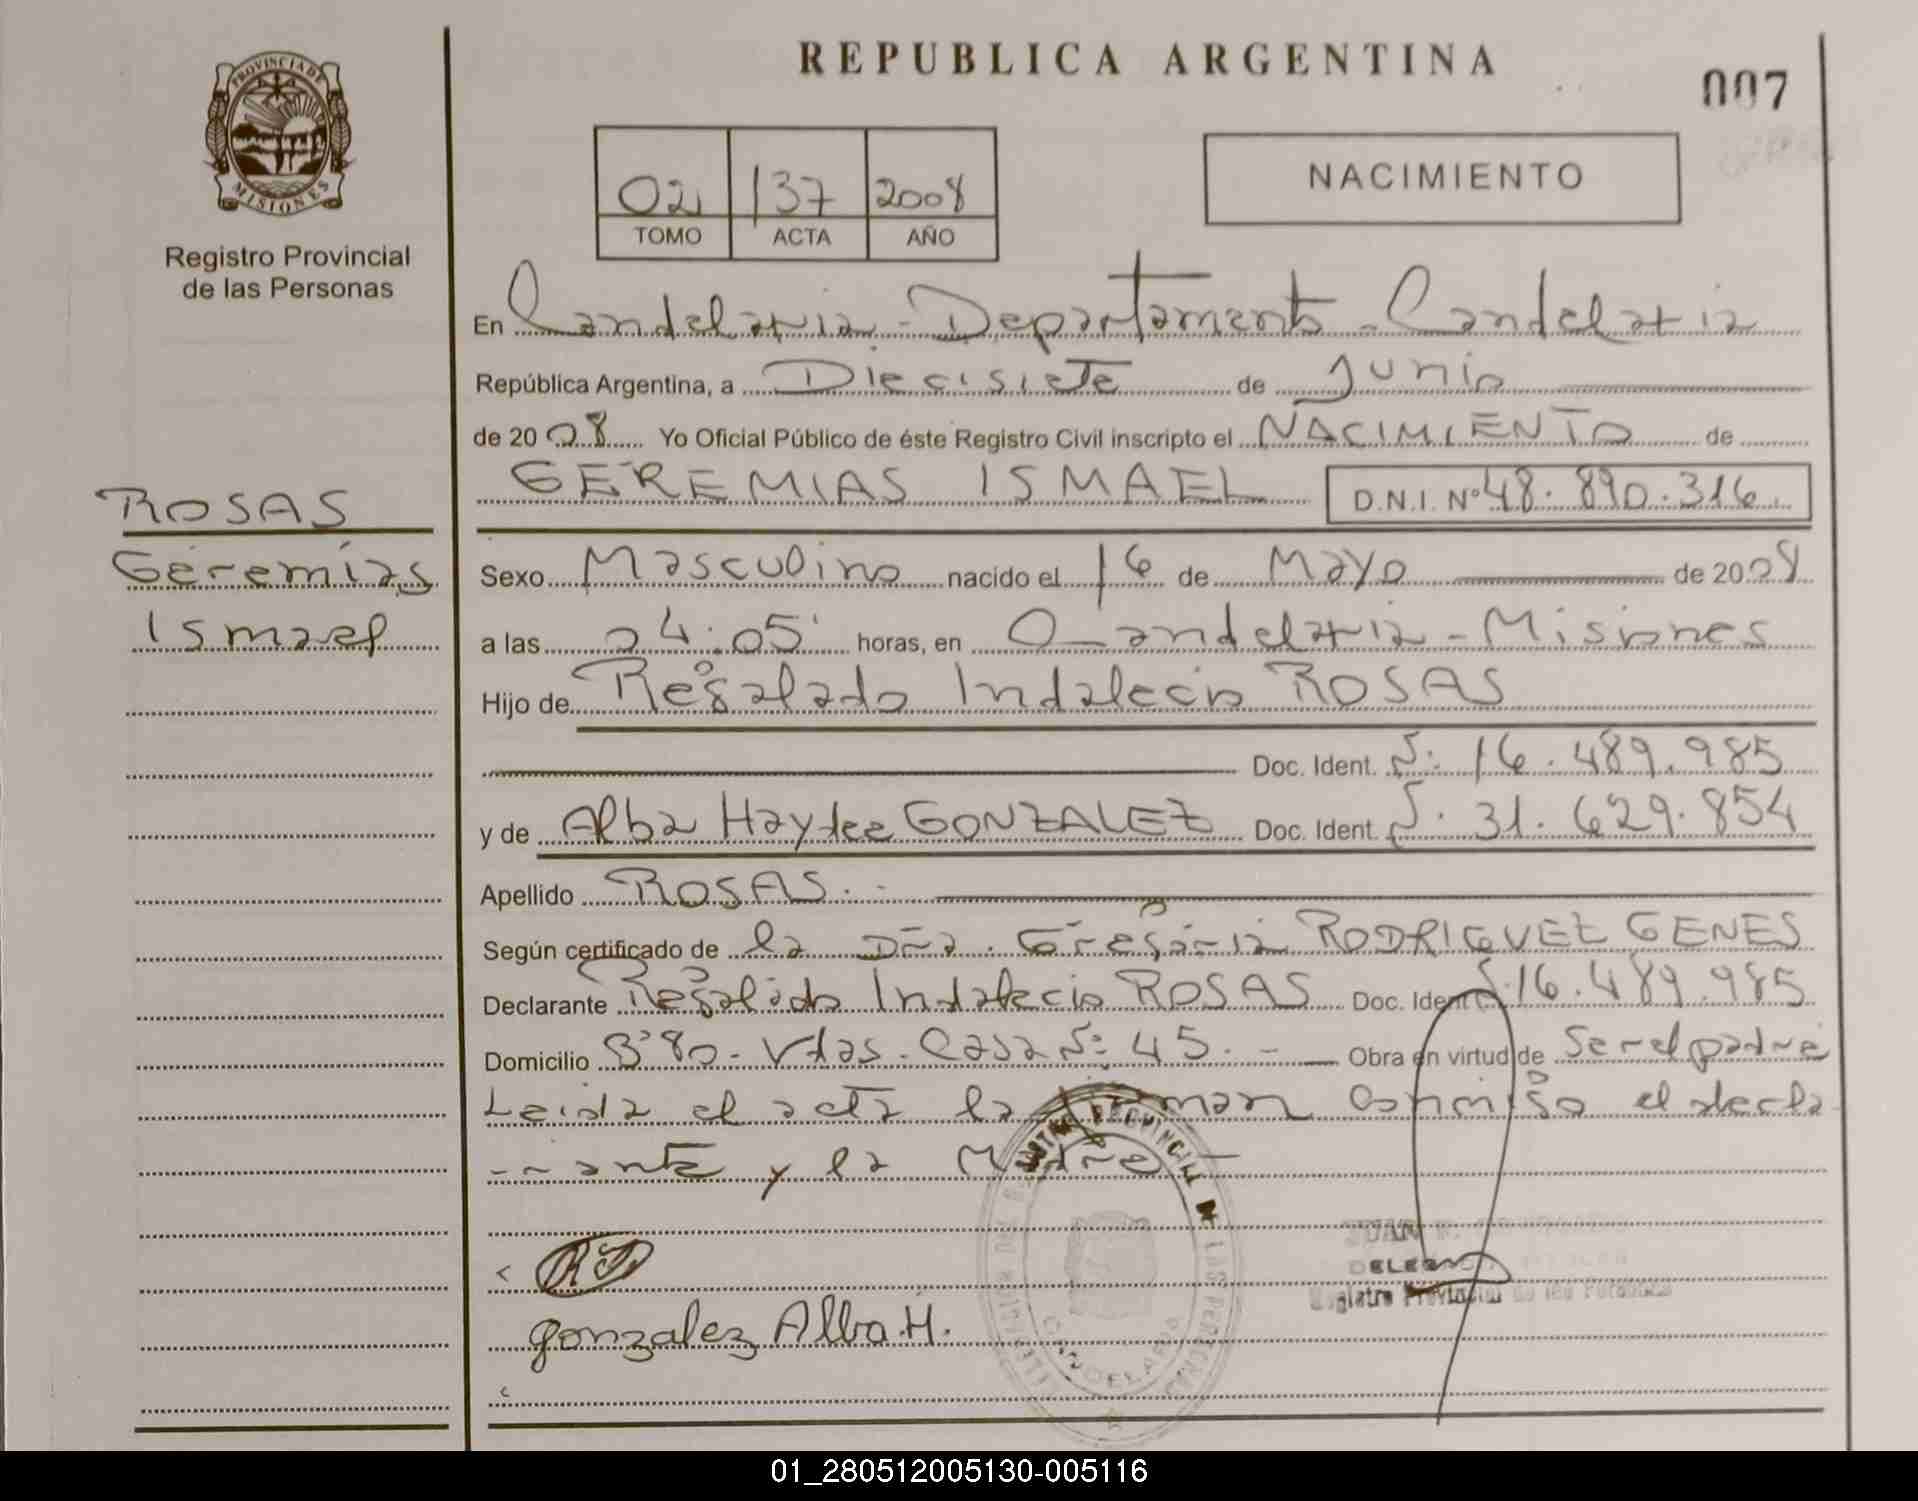 REPUBLICA ARGENTINA
007
PROVINCIA DE
MISIONES
Registro Provincial
de las Personas
02 137 2008
TOMO ACTA AÑO
NACIMIENTO
En Candelaria - Departamento - Candelaria
República Argentina, a Diecisiete de Junio
de 2008 Yo Oficial Público de éste Registro Civil inscripto el NACIMIENTO de
GEREMIAS ISMAEL D.N.I. Nº 48.890.316.
ROSAS
Geremías
Ismael
Sexo Masculino nacido el 16 de Mayo de 2008
a las 04:05' horas, en Candelaria - Misiones
Hijo de Regalado Indalecio ROSAS
Doc. Ident. Nº 16.489.985
y de Alba Haydee GONZALEZ Doc. Ident. Nº 31.629.854
Apellido ROSAS.-
Según certificado de la Dra. Gregoria RODRIGUEZ GENES
Declarante Regalado Indalecio ROSAS Doc. Ident. Nº 16.489.985
Domicilio Bº 80 - Vdas. Casa Nº 45. - Obra en virtud de Ser el padre
Leida el acta la firman conmigo el decla-
-rante y la Madre -
RI
gonzalez Alba.H.
REGISTRO PROVINCIAL DE LAS PERSONAS
CANDELARIA
JUAN
Registro Provincial de las Personas
01_280512005130-005116